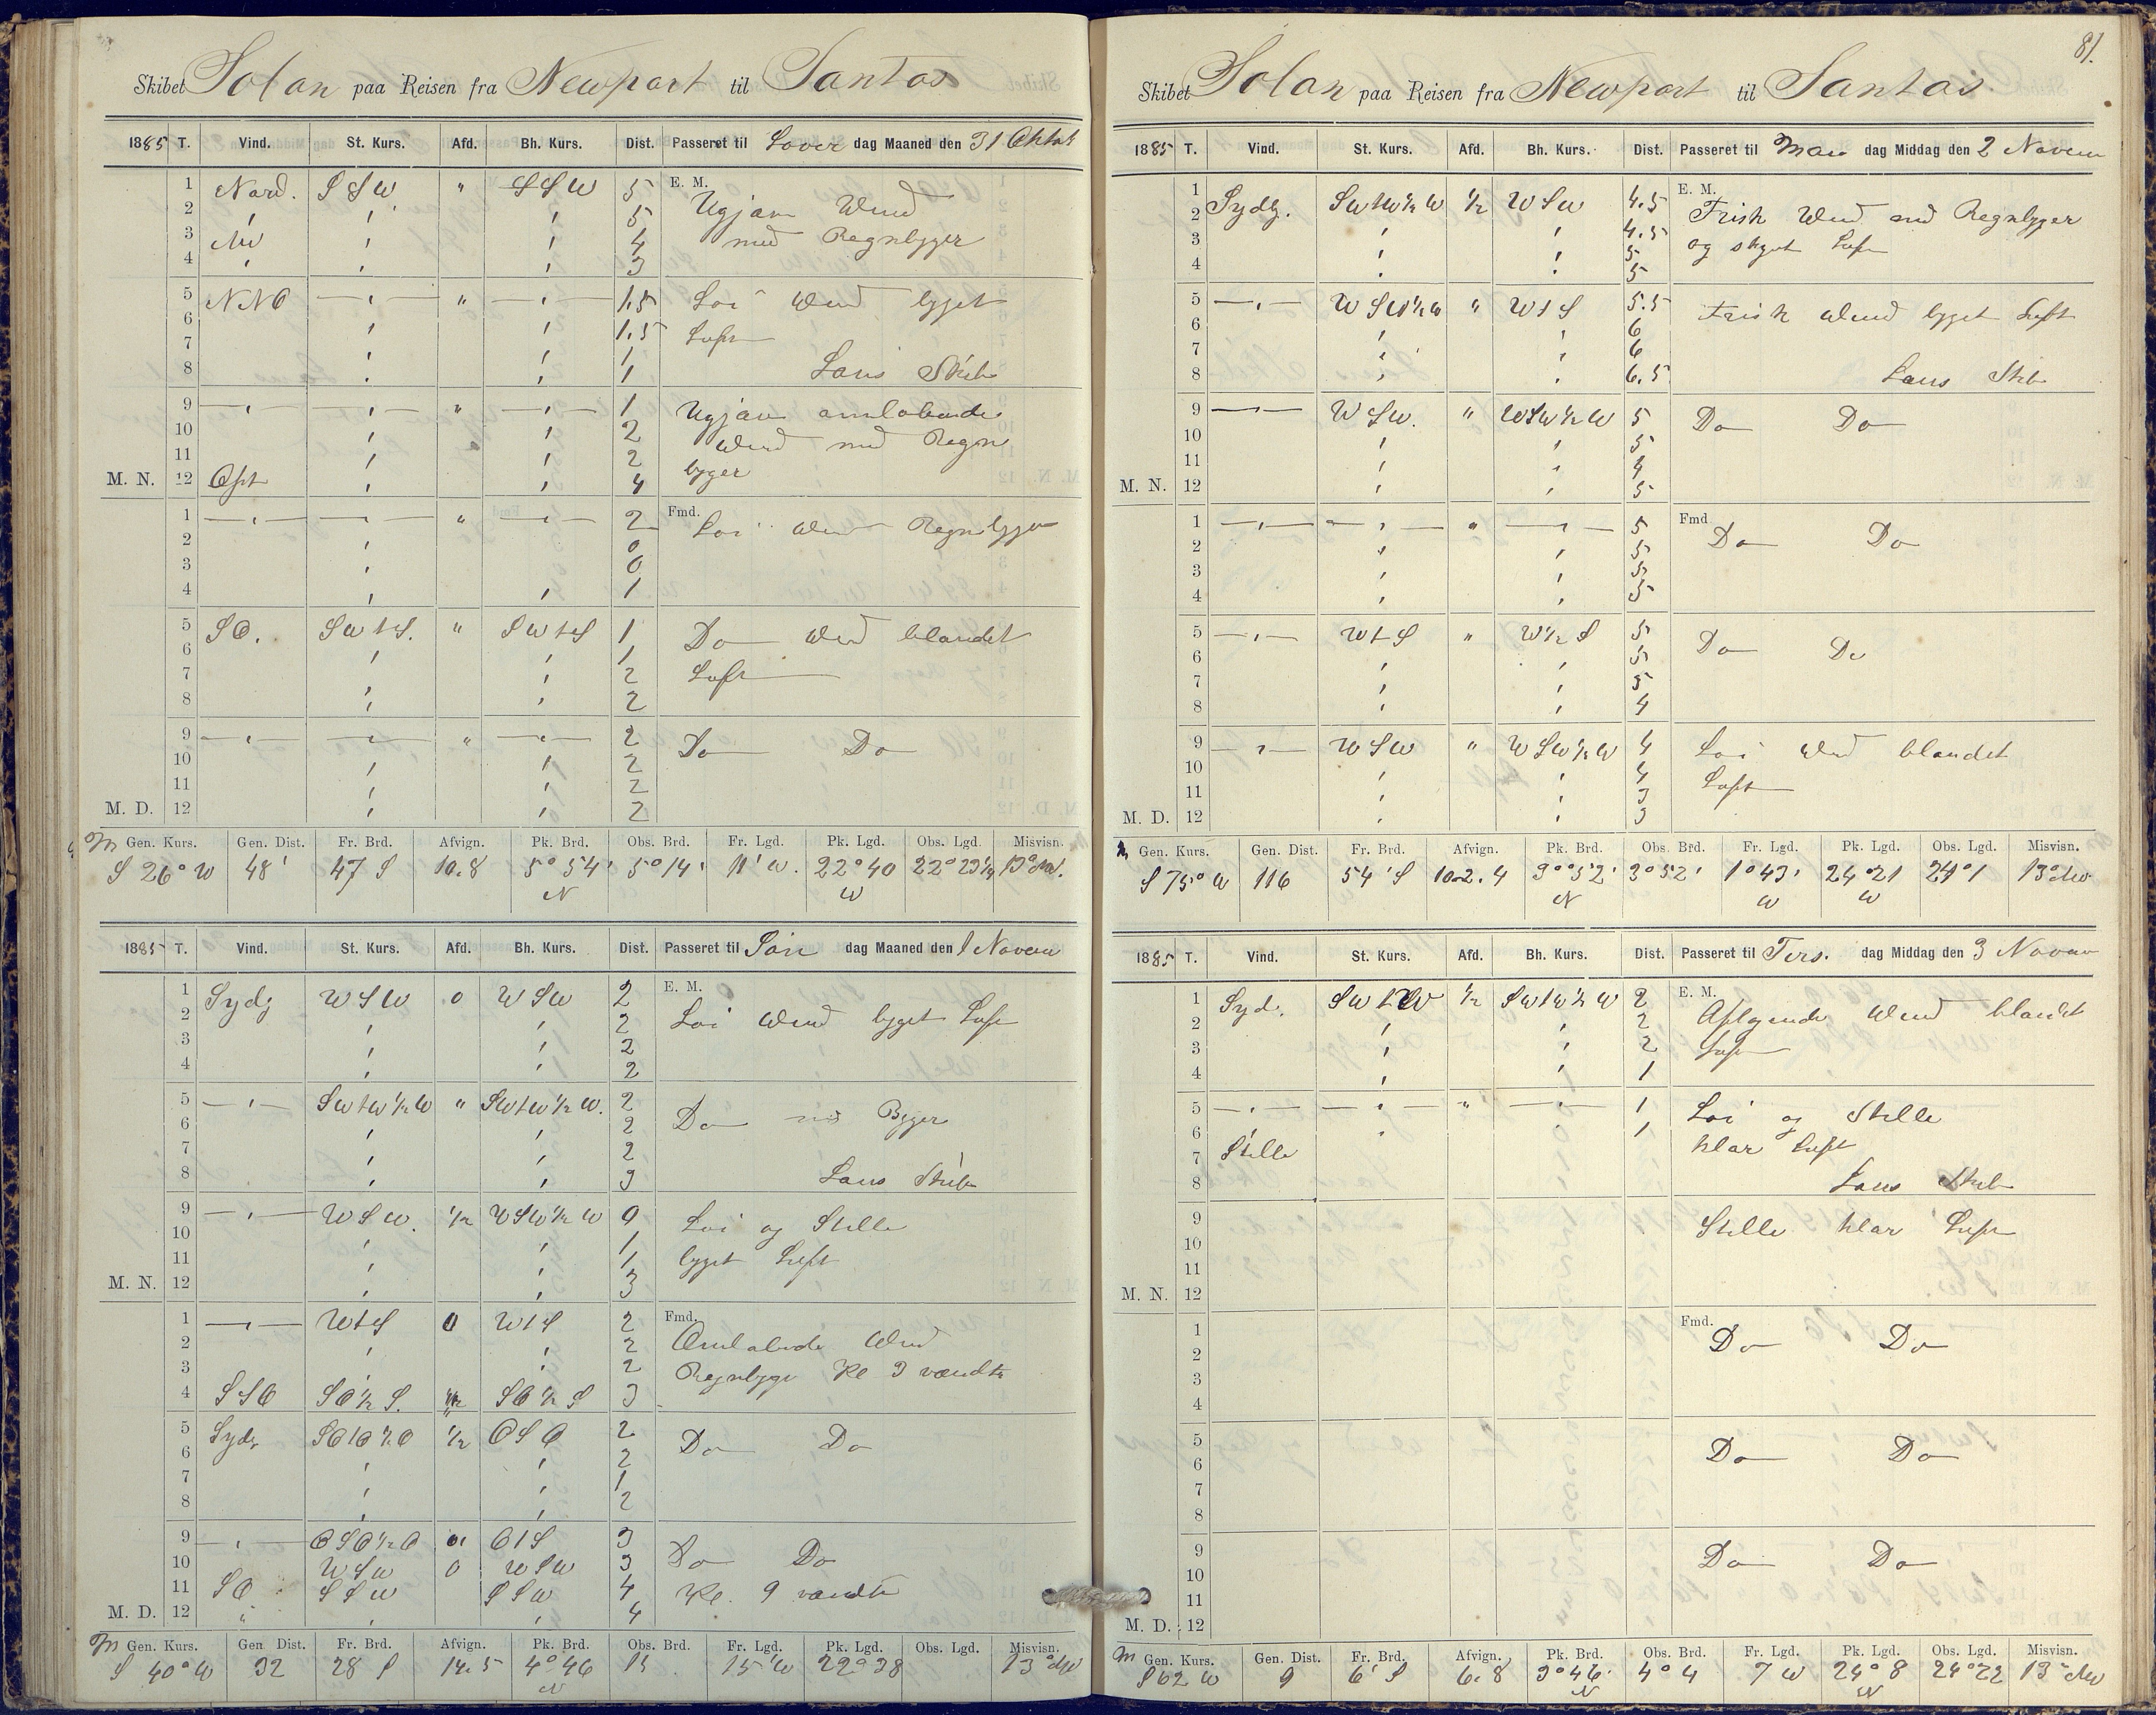 Skibet Solan paa Reisen fra Newport til Santos
1885 T. Vind. St. Kurs. Afd. Bh. Kurs. Dist. Passeret til Lover dag Maaned den 31 Oktob
1 Nord. SSW " SSW 5 E. M.
2 " " " 5 Ugjævn Wind
3 NW " " 4 med Regnbyger
4 " " " 3
5 NNO —"— " —"— 1,5 Loi Wind bygget
6 " " 1.5 Luft
7 " " 1
8 " " 1 Lens Skib
9 —"— —"— " —"— 1 Ugjævn omløbende
10 " " 2 Wind med Regn
11 " " 2 byger
M. N. 12 Ost " " 4
1 —"— —"— " —"— 2 Fmd. Loi Wind Regnbyger
2 " 0
3 " 0
4 " " 1
5 SO. SWtS. " SWtS 1 Do Wind blandet
6 " " 1
7 " " 2 Luft
8 " " 2
9 —"— —"— " —"— 2 Do Do
10 " " 2
11 " " 2
M. D. 12 " " 2
Gen. Kurs. Gen. Dist. Fr. Brd. Afvign. Pk. Brd. Obs. Brd. Fr. Lgd. Pk. Lgd. Obs. Lgd. Misvisn.
S 26° W 48' 47 S 10.8 5° 54' N 5° 14' 11' W. 22° 40 W 22° 23¼ 13° NW.
1885 T. Vind. St. Kurs. Afd. Bh. Kurs. Dist. Passeret til Søn dag Maaned den 1 Novem
1 Sydg WSW 0 WSW 2 E. M.
2 " " 2 Loi Wind bygget Luft
3 " " 2
4 " " 2
5 —"— SWtW½W " SWtW½W. 2
6 " " 2 Do med Byger
7 " " 2
8 " " 3 Lens Skib
9 —"— WSW. ½ WSW½W 0 Loi og Stille
10 " " 1
11 " " 1 bygget Luft
M. N. 12 " " 3
1 —"— WtS 0 WtS 2 Fmd.
2 " " 2 Omløbende Wind
3 " " 2 Regnbyge Kl 3 vendte
4 SSO SO½S. ½ SO½S 3
5 Sydg SOtO½O ½ OSO 2
6 " " 2 Do Do
7 " " 1
8 " " 2
9 —"— OSO½O 0 OtS 3
10 WSW 0 WSW 3 Do Do
11 SO SSW SSW 4 Kl. 9 vendte
M. D. 12 " " " 4
Gen. Kurs. Gen. Dist. Fr. Brd. Afvign. Pk. Brd. Obs. Brd. Fr. Lgd. Pk. Lgd. Obs. Lgd. Misvisn.
S 40° W 32 28 S 14.5 4° 46 N 15' W 22° 38 13° NW
81.
Skibet Solan paa Reisen fra Newport til Santos.
1885 T. Vind. St. Kurs. Afd. Bh. Kurs. Dist. Passeret til Man dag Middag den 2 Novem
1 Sydlg. SWtW½W ½ WSW 4.5 E. M.
2 " " 4.5 Frisk Wind med Regnbyger
3 " " 5 og skyet Luft
4 " " 5
5 —"— WSW½W " WtS 5.5 Frisk Wind bygget Luft
6 " " 6
7 " " 6
8 " " 6.5 Lens Skib
9 —"— WSW. " WSW½W 5 Do Do
10 " " 5
11 " " 4
M. N. 12 " " 5
1 —"— —"— " —"— 5 Fmd
2 " " 5 Do Do
3 " " 5
4 " " 5
5 —"— WtS " W½S 5 Do Do
6 " " 5
7 " " 5
8 " " 4
9 —"— WSW " WSW½W 4 Loi Wind blandet
10 " " 4
11 " " 3 Luft
M. D. 12 " " 3
Gen. Kurs. Gen. Dist. Fr. Brd. Afvign. Pk. Brd. Obs. Brd. Fr. Lgd. Pk. Lgd. Obs. Lgd. Misvisn.
S 75° W 116 54' S 102.4 3° 52' N 3° 52' 1° 43' W 24° 21 W 24° 1 13° NW
1885 T. Vind. St. Kurs. Afd. Bh. Kurs. Dist. Passeret til Tirs. dag Middag den 3 Novem
1 Syd. SWtW ½ SWtW½W 2 E. M.
2 " " 2 Afløiende Wind blandet
3 " " 2 Luft
4 " " 1
5 —"— —"— " —"— 1 Loi og Stille
6 " 1
7 Stille klar Luft
8 Lens Skib
9 Stille klar Luft
10
11
M. N. 12
1 Fmd. Do Do
2
3
4
5 Do Do
6
7
8
9 Do Do
10
11
M. D. 12
Gen. Kurs. Gen. Dist. Fr. Brd. Afvign. Pk. Brd. Obs. Brd. Fr. Lgd. Pk. Lgd. Obs. Lgd. Misvisn.
S 62 W 9 6' S 6.8 3° 46' N 4° 4 7 W 24° 8 W 24° 22 13° NW